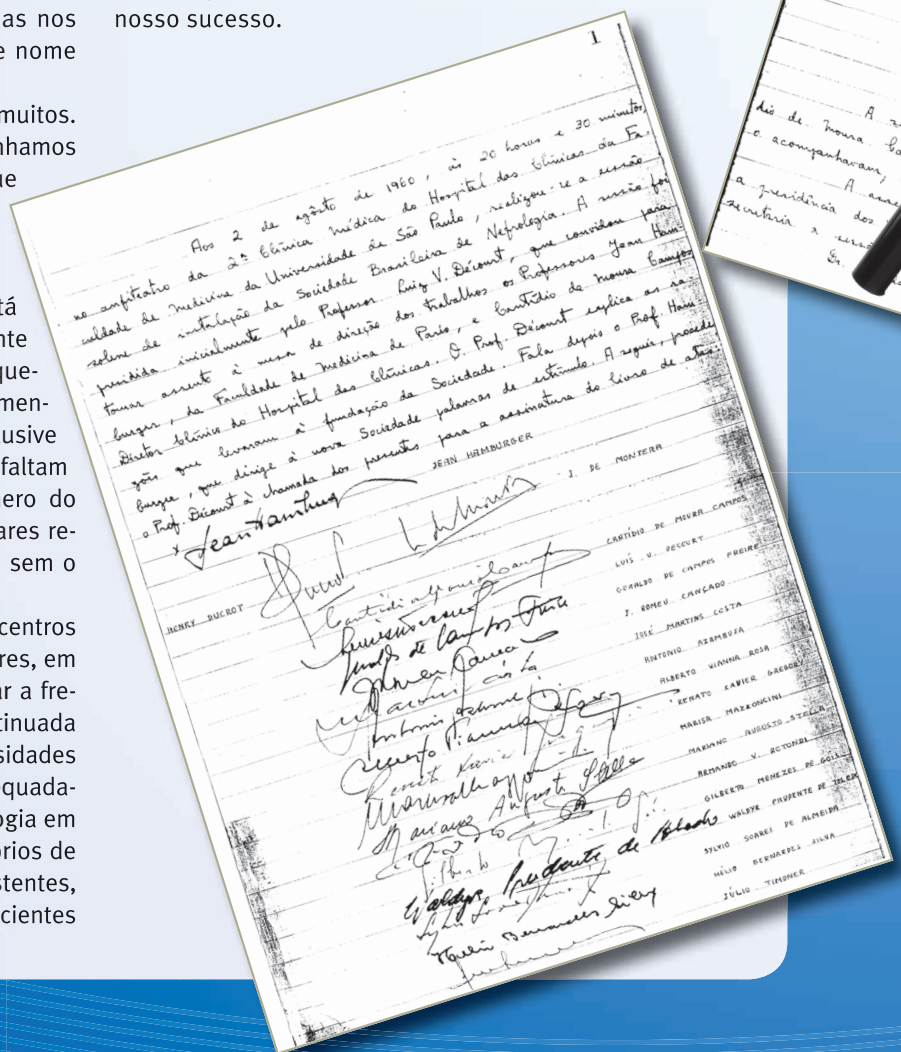 as nos
e nome
muitos.
nhamos
ue
tá
nte
que-
men-
usive
faltam
ero do
ares re-
sem o
centros
res, em
ar a fre-
tinuada
sidades
equada-
ogia em
órios de
stentes,
cientes
nosso sucesso.
1
Aos 2 de agôsto de 1960, às 20 horas e 30 minutos,
no anfiteatro da 2ª Clínica Médica do Hospital das Clínicas da Fa-
culdade de Medicina da Universidade de São Paulo, realizou-se a sessão
solene de instalação da Sociedade Brasileira de Nefrologia. A sessão foi
presidida inicialmente pelo Professor Luiz V. Décourt, que convidou para
tomar assento à mesa de direção dos trabalhos os Professores Jean Ham-
burger, da Faculdade de Medicina de Paris, e Cantídio de Moura Campos
Diretor Clínico do Hospital das Clínicas. O Prof. Décourt explica as ra-
zões que levaram à fundação da Sociedade. Fala depois o Prof. Ham-
burger, que dirige à nova Sociedade palavras de estímulo. A seguir, procede
o Prof. Décourt à chamada dos presentes para a assinatura do livro de atas:
x Jean Hamburger JEAN HAMBURGER
J. DE MONTERA
HENRY DUCROT
CANTÍDIO DE MOURA CAMPOS
LUÍS V. DECOURT
GERALDO DE CAMPOS FREIRE
J. ROMEU CANÇADO
JOSÉ MARTINS COSTA
ANTONIO AZAMBUJA
ALBERTO VIANNA ROSA
RENATO XAVIER GREGORY
MARISA MAZZONCINI
Mariano Augusto Stella MARIANO AUGUSTO STELLA
ARMANDO V. ROTONDI
GILBERTO MENEZES DE GÓIS
Waldyr Prudente de Toledo WALDYR PRUDENTE DE TOLEDO
SYLVIO SOARES DE ALMEIDA
Hélio Bernardes Silva HÉLIO BERNARDES SILVA
JÚLIO TIMONER
A
dio de Moura
o acompanhavam,
A
a presidência dos
secretaria
Dr.